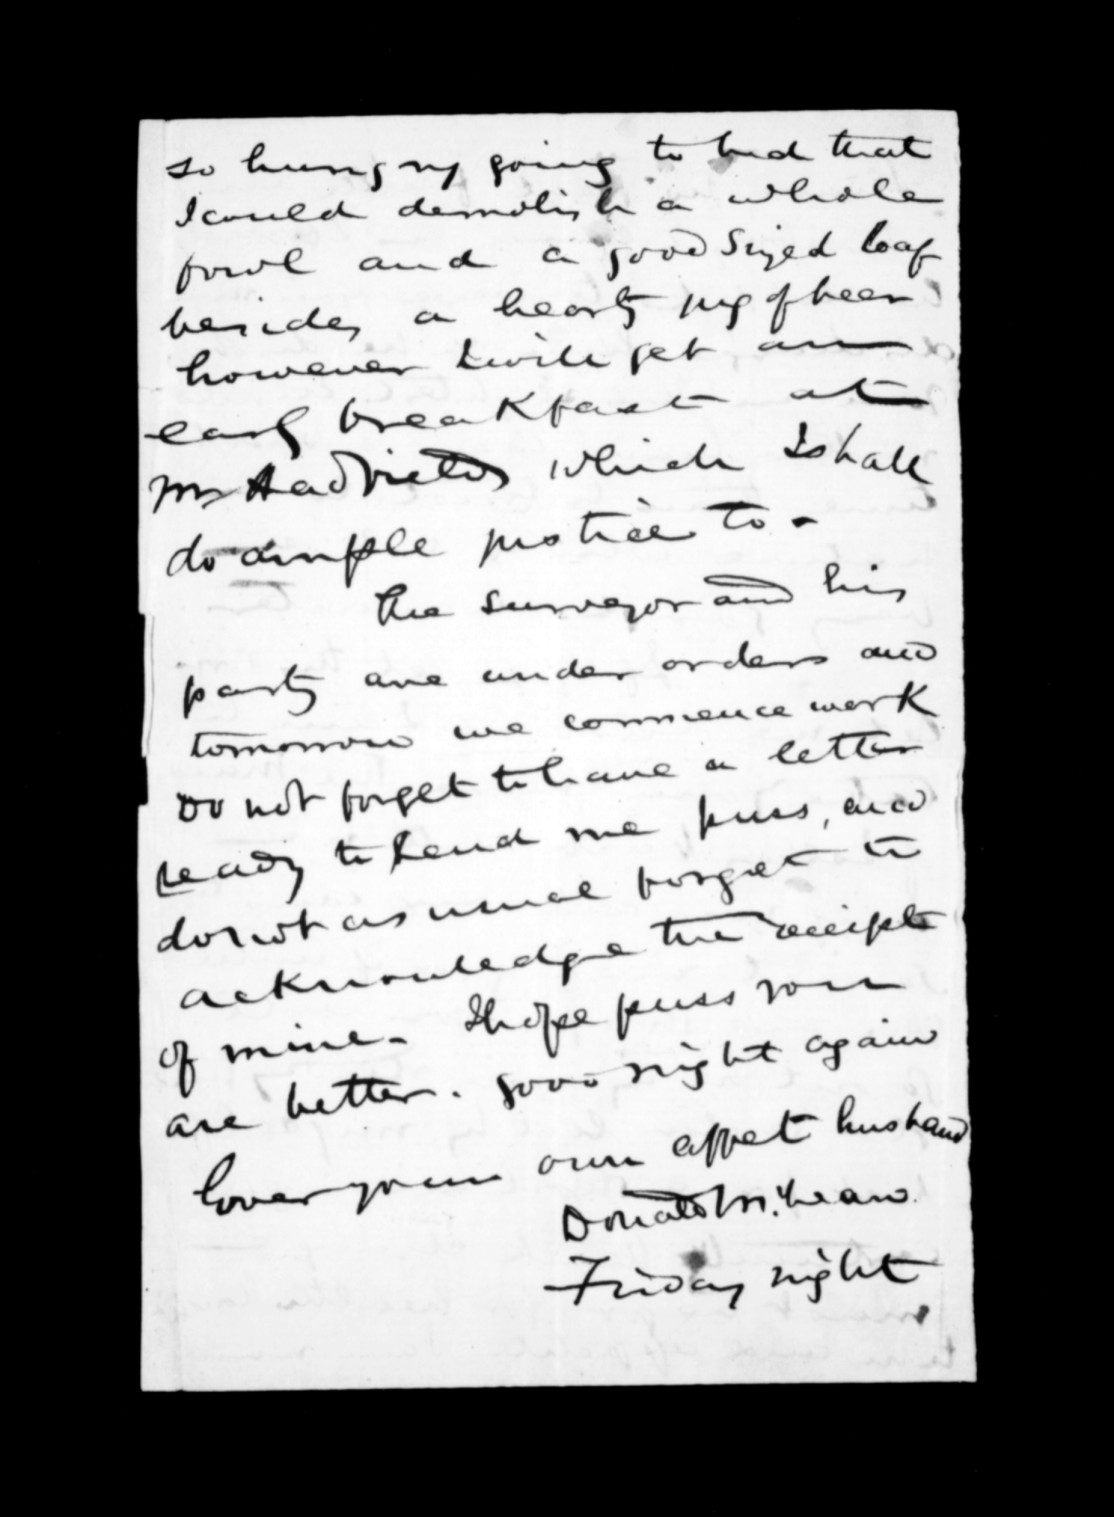 so hungry going to bed that
I could demolish a whole
fowl and a good sized loaf
besides a hearty jug of beer
however I will get an
early breakfast at
Mr Hadfields which I shall
do ample justice to -
The surveyor and his
party are under orders and
tomorrow we commence work
Do not forget to have a letter
ready to send me puss, and
do not as usual forget to
acknowledge the receipt
of mine - I hope puss you
are better. Good night again
love your own affet husband
Donald McLean
Friday night